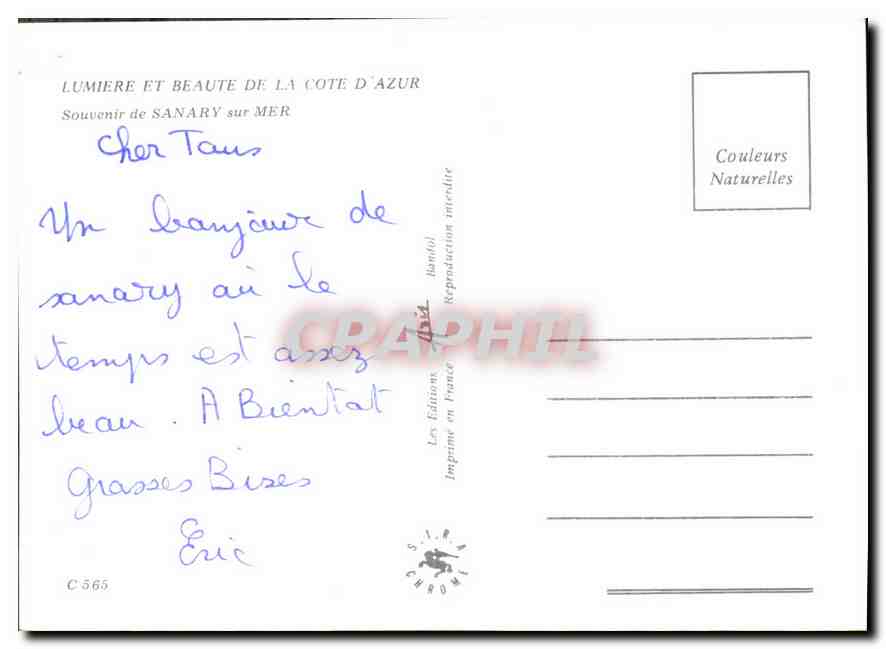 LUMIERE ET BEAUTE DE LA COTE D'AZUR
Souvenir de SANARY sur MER
Cher Tous
Un bonjour de
sanary où le
temps est assez
beau. A Bientot
Grosses Bises
Eric
C 565
Les Editions Aris Bandol
Imprimé en France Reproduction interdite
CPAPHIL
S.I.R.A
CHROME
Couleurs
Naturelles